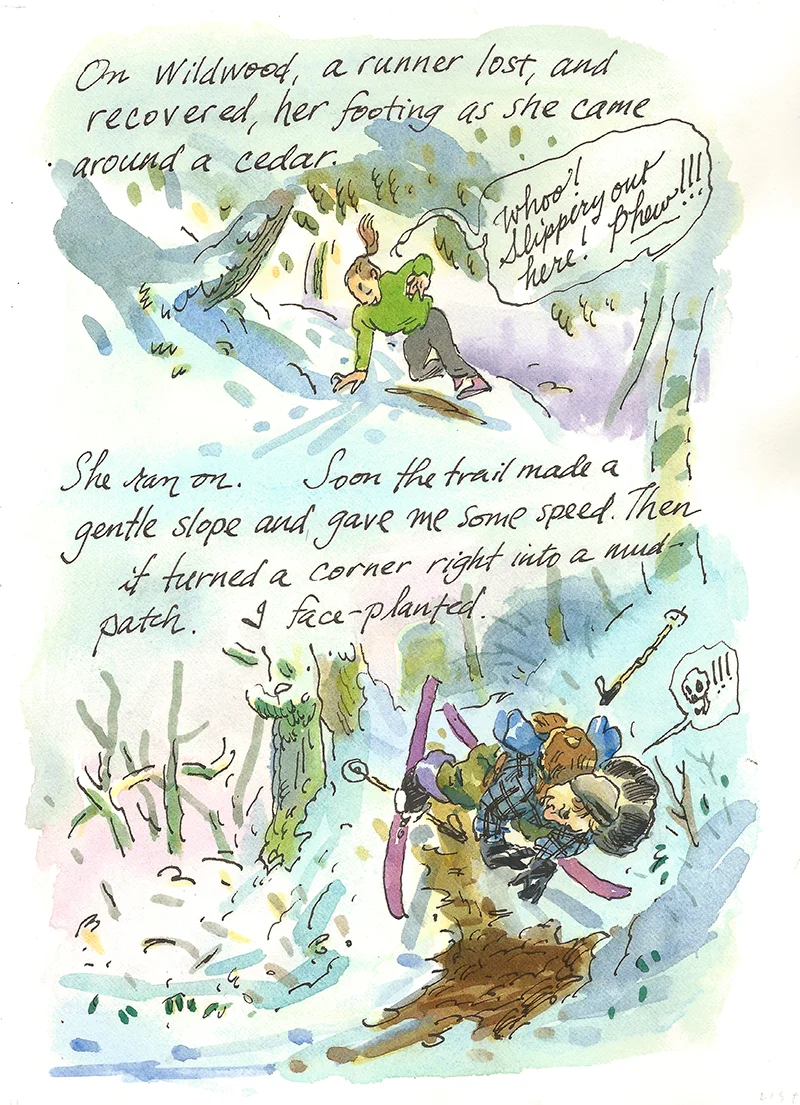 On Wildwood, a runner lost, and
recovered, her footing as she came
around a cedar.
Whoo!
Slippery out
here! Phew!!!
She ran on. Soon the trail made a
gentle slope and gave me some speed. Then
it turned a corner right into a mud-
patch. I face-planted.
!!!